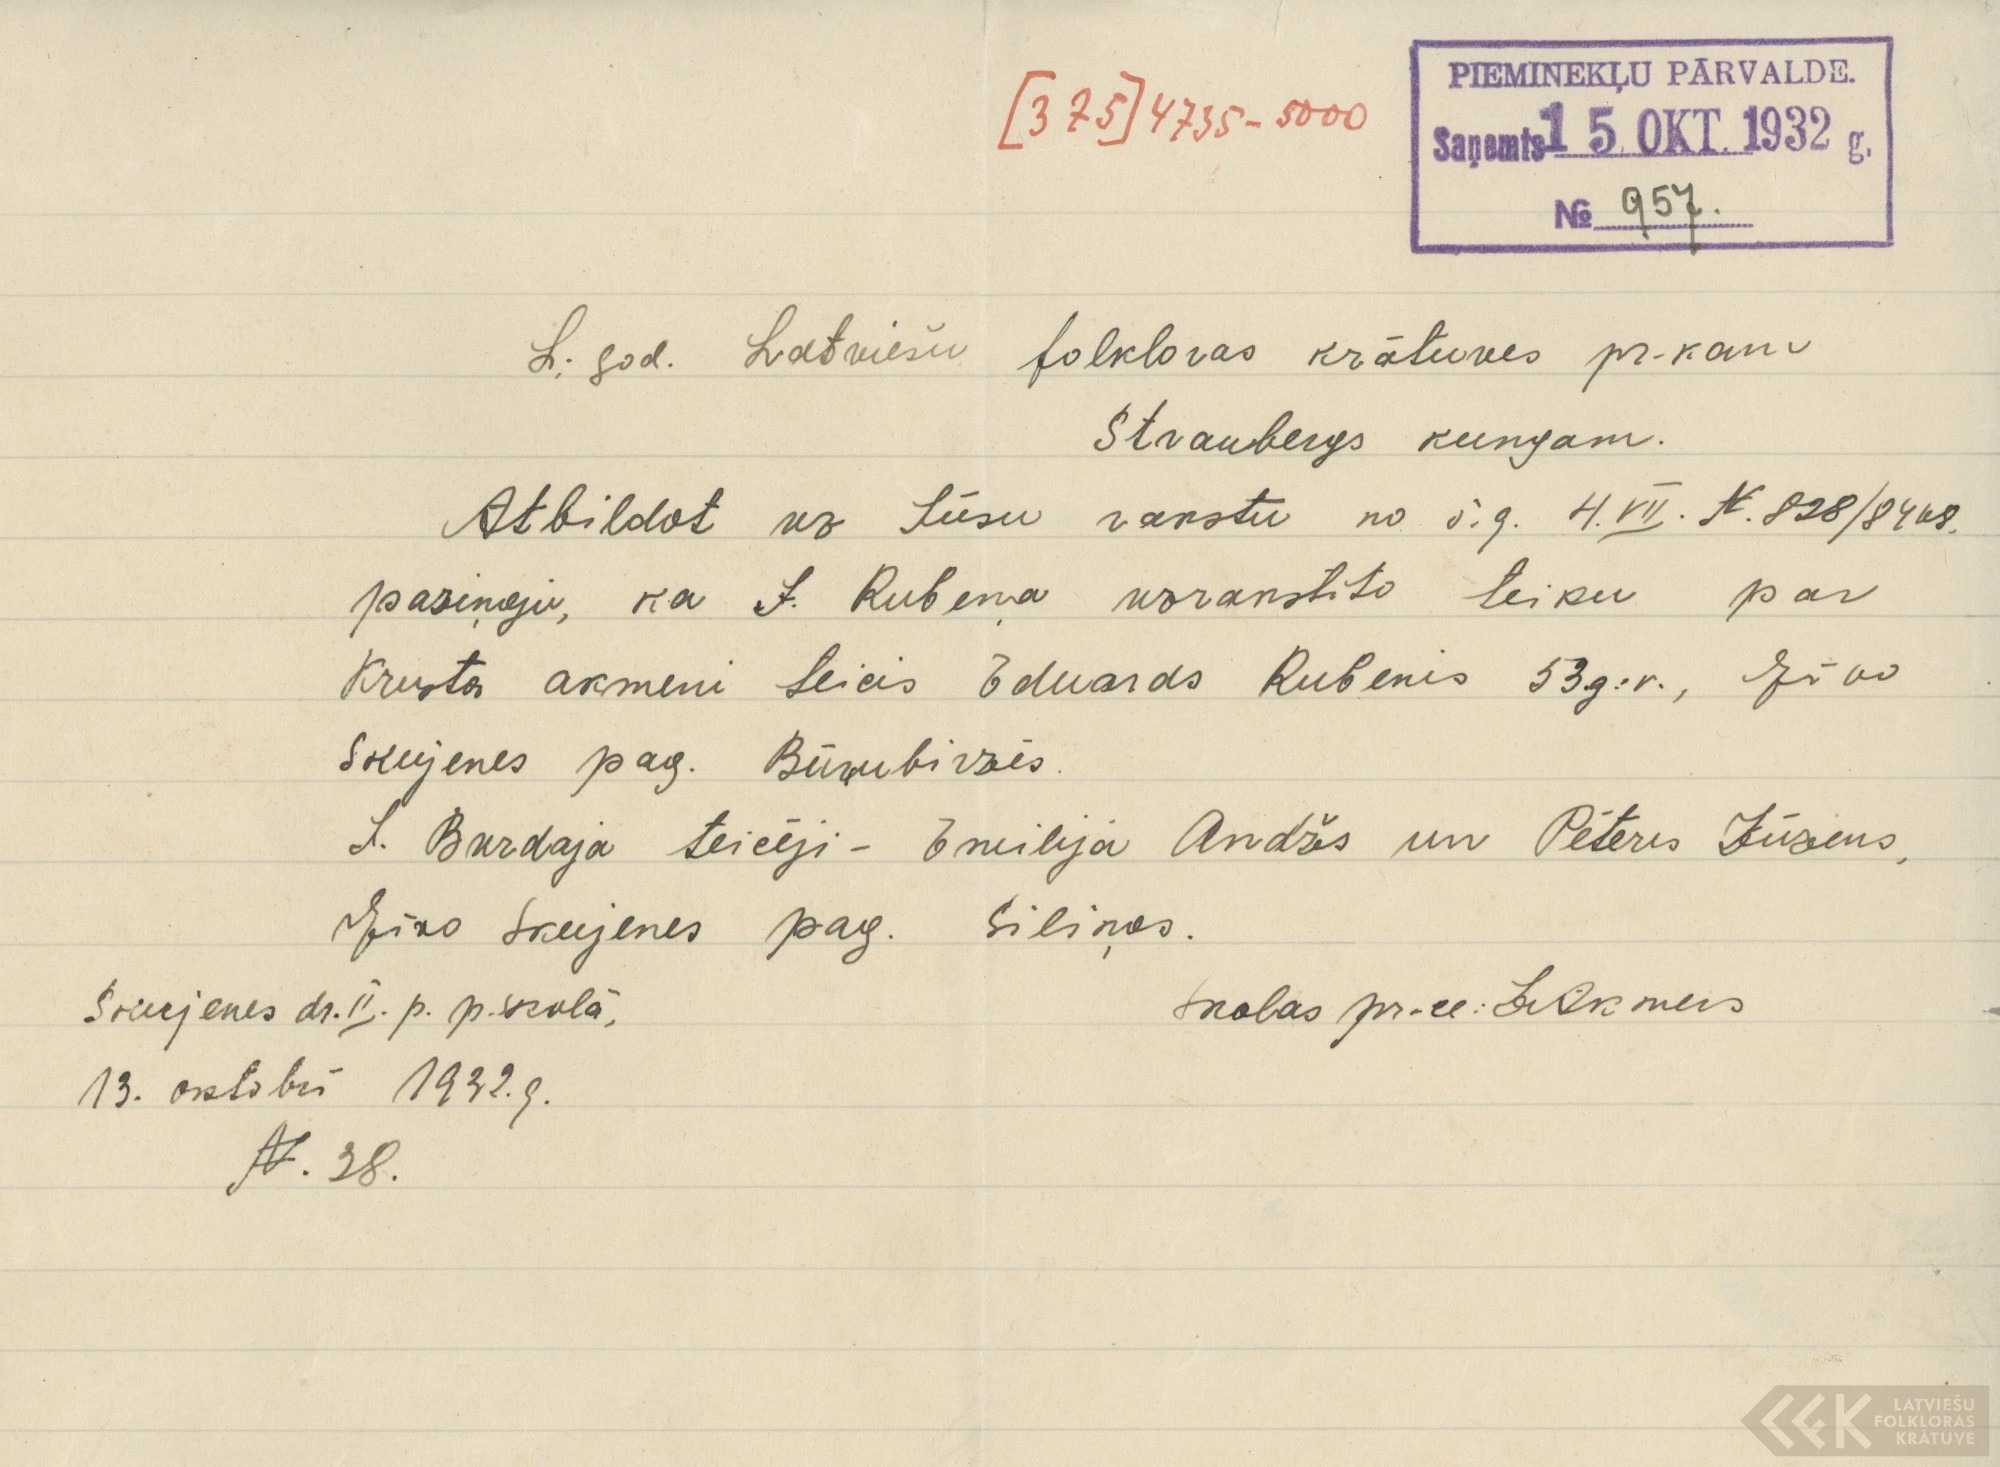 [375] 4735-5000
PIEMINEKĻU PĀRVALDE.
Saņemts 15. OKT. 1932 g.
№ 957.
L. god. Latviešu folkloras krātuves pr-kam
Straubergs kungam.
Atbildot uz Jūsu rakstu no š.g. 4.VII. N. 828/8408.
paziņoju, ka J. Rubeņa uzrakstīto teiku par
Krusta akmeni teicis Eduards Rubenis 53 g. v., dzīvo
Skujenes pag. Būņubirzēs.
J. Burdaja teicēji - Emilija Andžs un Pēteris Zūzens,
dzīvo Skujenes pag. Siliņos.
Skujenes dr. II. p. p. skolā,
Skolas pr-ce: Akmens
13. oktobrī 1932. g.
N. 38.
LATVIEŠU
FOLKLORAS
KRĀTUVE